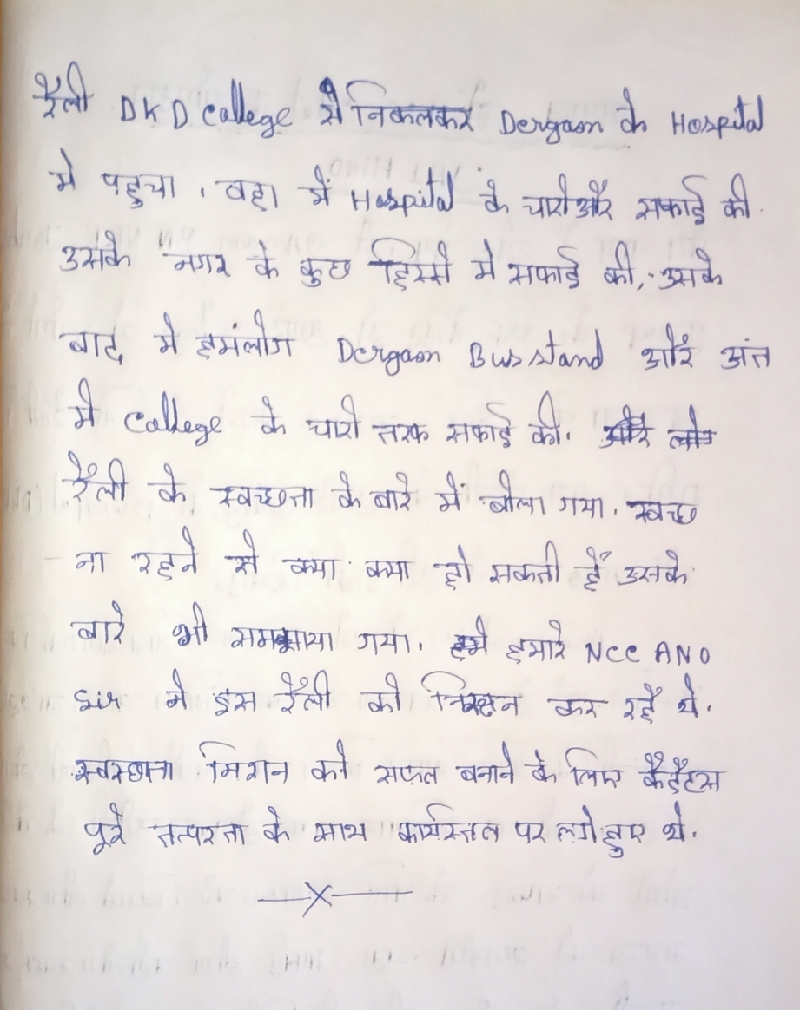 रैली DKD College से निकलकर Dergaon के Hospital
मे पहुचा, वहा में Hospital के चारो और सफाई की.
उसके नगर के कुछ हिस्सो मे सफाई की, उसके
बाद मे हमलोग Dergaon Bus stand और अंत
मे College के चारो तरफ सफाई की.
रैली के स्वच्छता के बारे में बोला गया. स्वच्छ
ना रहने से क्या क्या हो सकती हैं उसके
बारे भी समझाया गया. हमारे NCC ANO
Sir ने इस रैली को कर रहें थे.
स्वस्छता मिशन को सफल बनाने के लिए कैडैटस
पूरे तत्परता के साथ कार्यस्तल पर लगे हुए थे.